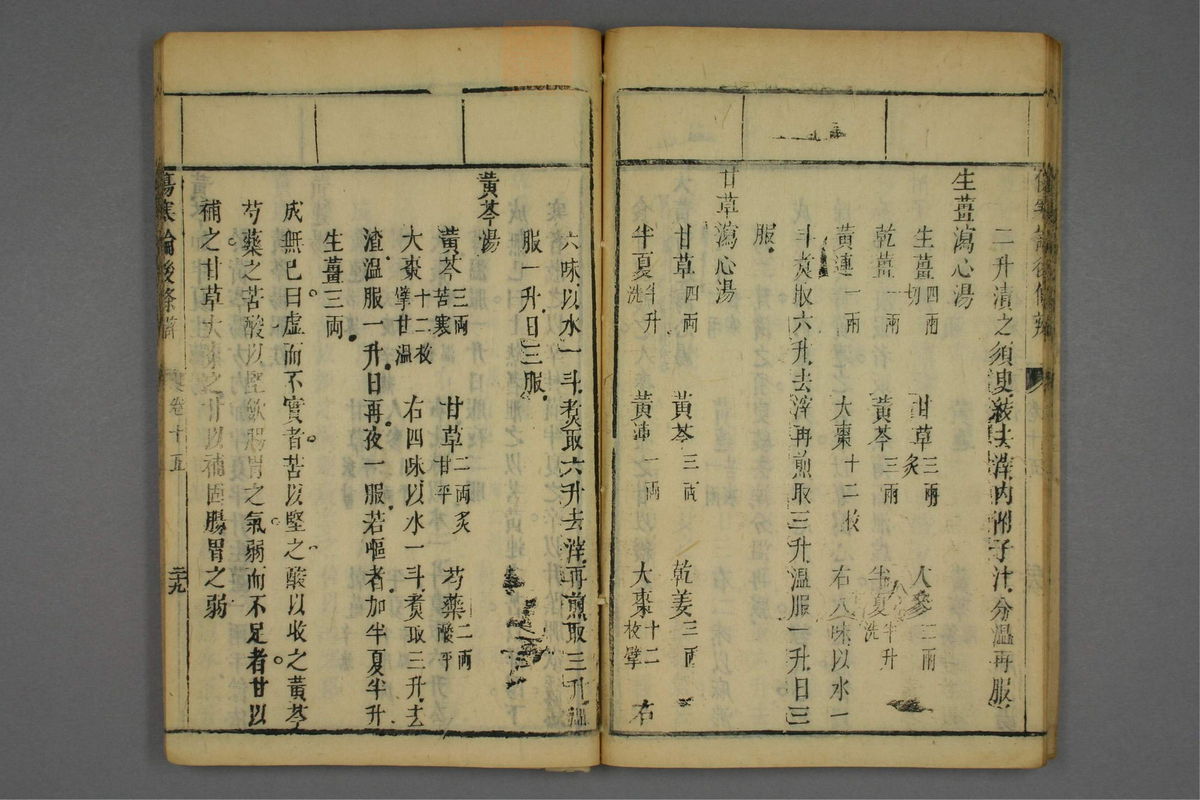 二升漬之須臾絞去滓內附子汁分溫再服
生薑瀉心湯
生薑四兩切 甘草三兩炙 人參三兩
乾薑一兩 黃芩三兩 半夏半升洗
黃連一兩 大棗十二枚 右八味以水一
斗煮取六升去滓再煎取三升溫服一升日三
服
甘草瀉心湯
甘草四兩 黃芩三兩 乾姜三兩
半夏半升洗 黃連一兩 大棗十二枚擘 右
六味以水一斗煮取六升去滓再煎取三升溫
服一升日三服
黃芩湯
黃芩三兩苦寒 甘草二兩炙甘平 芍藥二兩酸平
大棗十二枚擘甘溫 右四味以水一斗煮取三升去
渣溫服一升日再夜一服若嘔者加半夏半升
生薑三兩
成無已曰虛而不實者苦以堅之酸以收之黃芩
芍藥之苦酸以堅斂腸胃之氣弱而不足者甘以
補之甘草大棗之甘以補固腸胃之弱
傷寒論後條辯 卷十五 三九